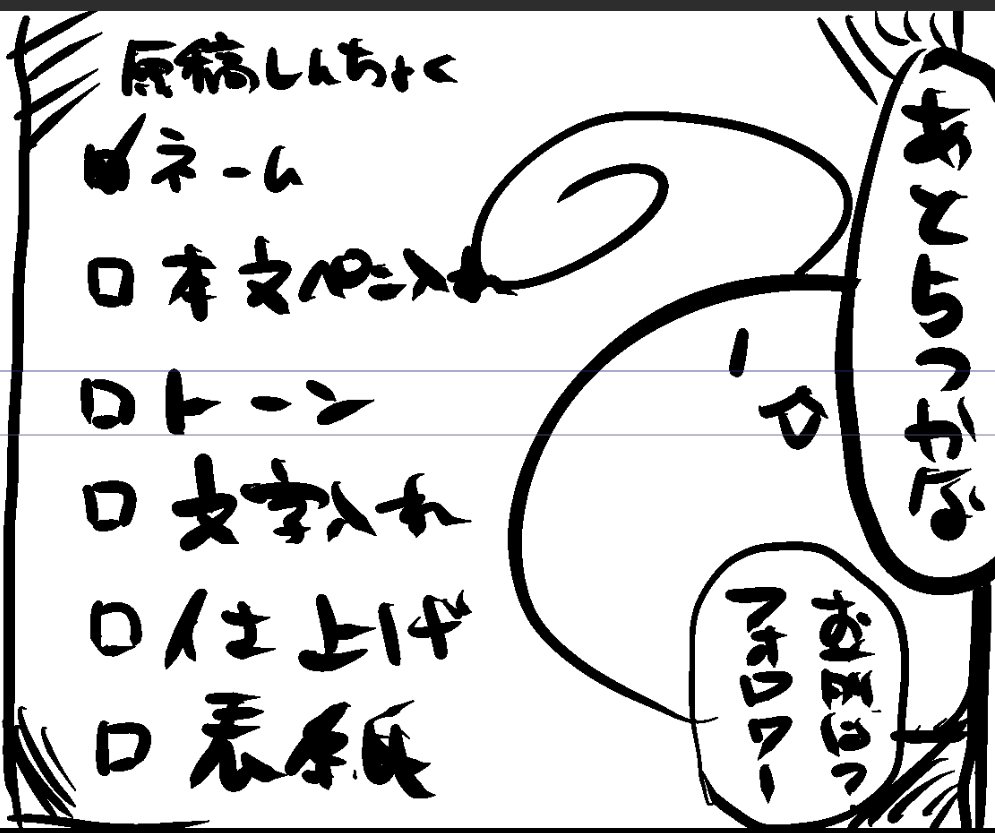 原稿しんちょく
ネーム
本文ペン入れ
トーン
文字入れ
仕上げ
表紙
あとらつかな
フォロワー